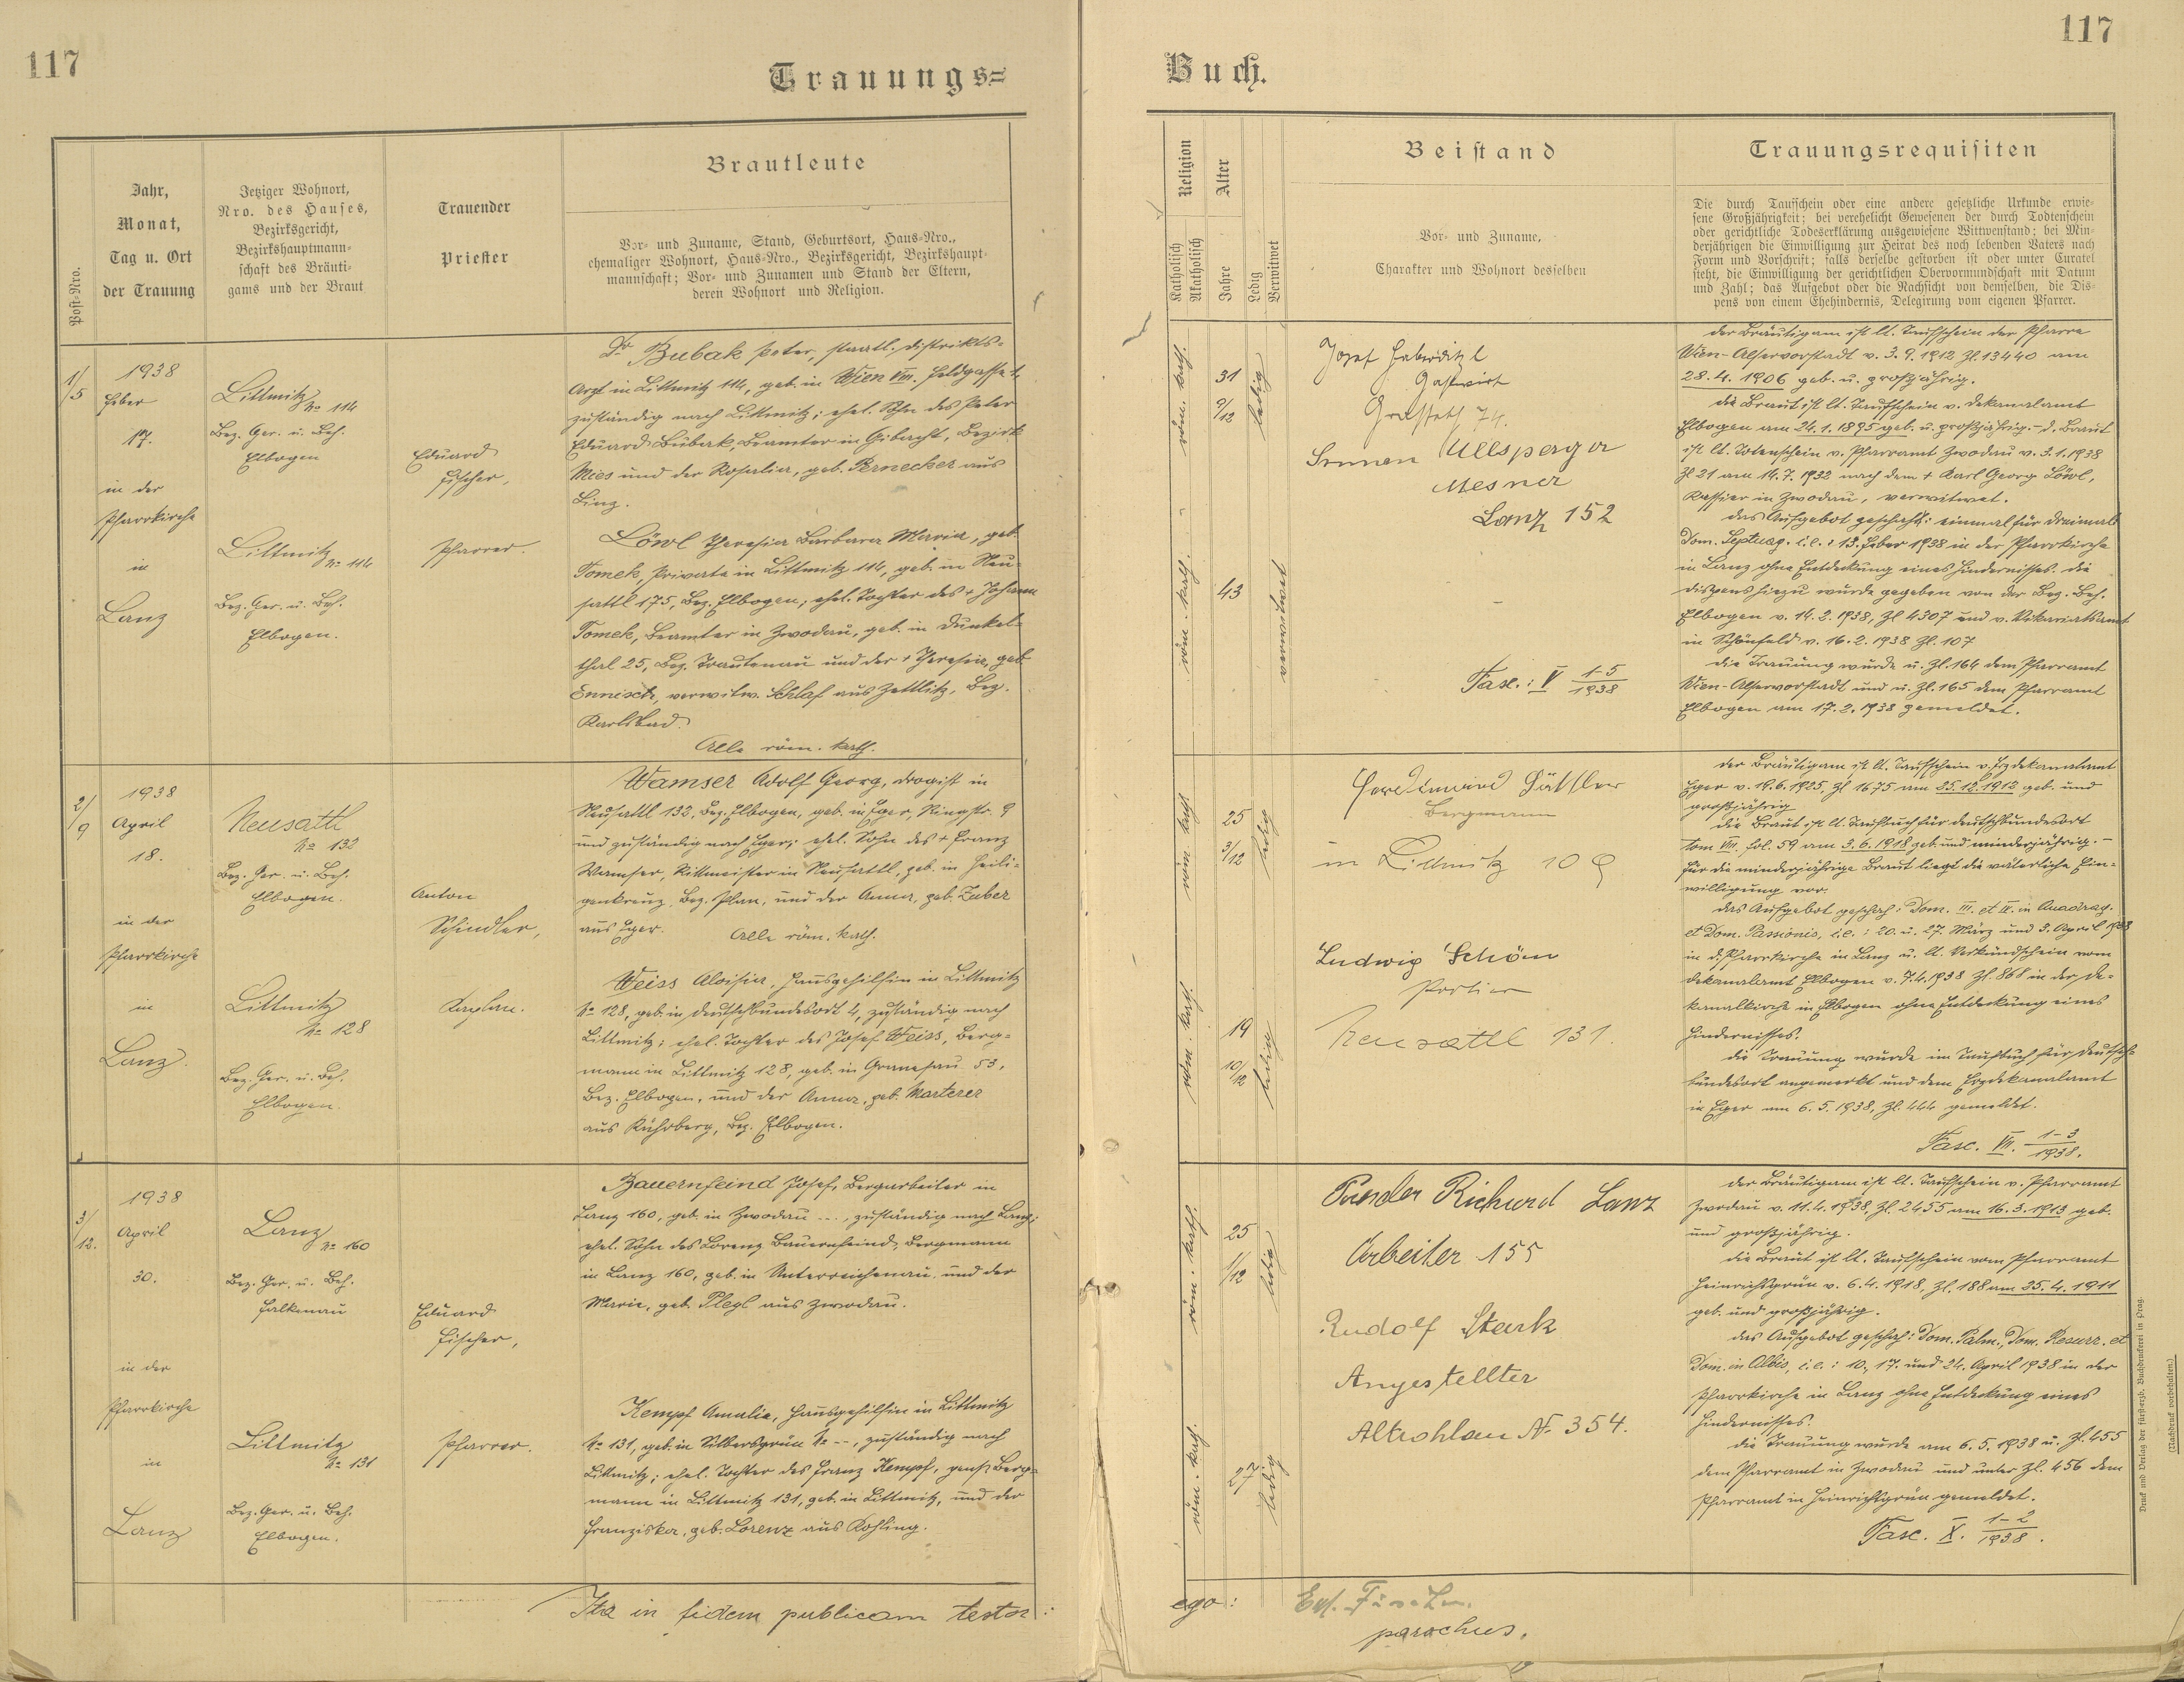 117
Trauungs=
Post-Nro.
Jahr,
Monat,
Tag u. Ort
der Trauung
Jetziger Wohnort,
Nro. des Hauses,
Bezirksgericht,
Bezirkshauptmann-
schaft des Bräuti-
gams und der Braut
Trauender
Priester
Brautleute
Vor- und Zuname, Stand, Geburtsort, Haus-Nro.,
ehemaliger Wohnort, Haus-Nro., Bezirksgericht, Bezirkshaupt-
mannschaft; Vor- und Zunamen und Stand der Eltern,
deren Wohnort und Religion.
1/5
1938
Feber
17.
in der
Pfarrkirche
in
Lanz
Littmitz
No 114
Bez. Ger. u. Beh.
Elbogen
Littmitz
No 114
Bez. Ger. u. Beh.
Elbogen.
Eduard
Fischer,
Pfarrer.
Dr Bubak Peter, staatl. Distrikts-
Arzt in Littmitz 114, geb. in Wien VIII. Feldgasse 1,
zuständig nach Littmitz; ehel. Sohn des Peter
Eduard Bubak, Beamter in Gibacht, Bezirk
Mies und der Rosalia, geb. Pernecker aus
Linz.
Löwl Theresia Barbara Maria, geb.
Tomek, Private in Littmitz 114, geb. in Neu-
sattl 175, Bez. Elbogen; ehel. Tochter des + Johann
Tomek, Beamter in Zwodau, geb. in Dunkel-
thal 25, Bez. Trautenau und der + Theresia, geb.
Ennisch, verwitw. Schlaf aus Zettlitz, Bez.
Karlsbad.
Alle röm. kath.
2/9
1938
April
18.
in der
Pfarrkirche
in
Lanz
Neusattl
No 132
Bez. Ger. u. Beh.
Elbogen.
Littmitz
No 128
Bez. Ger. u. Beh.
Elbogen.
Anton
Schindler,
Kaplan.
Wamser Adolf Georg, Drogist in
Neusattl 132, Bez. Elbogen, geb. in Eger, Ringstr. 9
und zuständig nach Eger; ehel. Sohn des + Franz
Wamser, Rittmeister in Neusattl, geb. in Heili-
genkreuz, Bez. Plan, und der Anna, geb. Zuber
aus Eger.
Alle röm. kath.
Weiss Aloisia, Hausgehilfin in Littmitz
No 128, geb. in Deutschbundesort 4, zuständig nach
Littmitz; ehel. Tochter des Josef Weiss, Berg-
mann in Littmitz 128, geb. in Granesau 53,
Bez. Elbogen, und der Anna, geb. Marterer
aus Kührberg, Bez. Elbogen.
3/12.
1938
April
30.
in der
Pfarrkirche
in
Lanz
Lanz
No 160
Bez. Ger. u. Beh.
Falkenau
Littmitz
No 131
Bez. Ger. u. Beh.
Elbogen.
Eduard
Fischer,
Pfarrer.
Bauernfeind Josef, Bergarbeiter in
Lanz 160, geb. in Zwodau ..., zuständig nach Lanz;
ehel. Sohn des Lorenz Bauernfeind, Bergmann
in Lanz 160, geb. in Unterreichenau, und der
Marie, geb. Plegl aus Zwodau.
Kempf Amalia, Hausgehilfin in Littmitz
No 131, geb. in Silbersgrün No --, zuständig nach
Littmitz; ehel. Tochter des Franz Kempf, pens. Berg-
mann in Littmitz 131, geb. in Littmitz, und der
Franziska, geb. Lorenz aus Kohling.
Ita in fidem publicam testor:
117
Buch.
Religion
Katholisch
Akatholisch
Alter
Jahre
Ledig
Verwitwet
Beistand
Vor- und Zuname,
Charakter und Wohnort desselben
Trauungsrequisiten
Die durch Taufschein oder eine andere gesetzliche Urkunde erwie-
sene Großjährigkeit; bei verehelicht Gewesenen der durch Todtenschein
oder gerichtliche Todeserklärung ausgewiesene Wittwenstand; bei Min-
derjährigen die Einwilligung zur Heirat des noch lebenden Vaters nach
Form und Vorschrift; falls derselbe gestorben ist oder unter Curatel
steht, die Einwilligung der gerichtlichen Obervormundschaft mit Datum
und Zahl; das Aufgebot oder die Nachsicht von demselben, die Dis-
pens von einem Ehehindernis, Delegirung vom eigenen Pfarrer.
röm. kath.
31
9/12
ledig
röm. kath.
43
verwitwet
Josef Haberditzl
Gastwirt
Grasseth 74.
Ullsperger
Mesner
Lanz 152
Fasc.: V 1-5/1938
der Bräutigam ist lt. Taufschein der Pfarre
Wien-Alservorstadt v. 3.9.1912 Zl. 13440 am
28.4.1906 geb. u. großjährig.
die Braut ist lt. Taufschein v. Dekanalamt
Elbogen am 24.1.1895 geb. u. großjährig. - d. Braut
ist lt. Totenschein v. Pfarramt Zwodau v. 3.1.1938
Zl 21 am 14.7.1932 nach dem + Karl Georg Löwl,
Kassier in Zwodau, verwitwet.
das Aufgebot geschah: einmal für dreimal
Dom. Septuag. i.e.: 13. Feber 1938 in der Pfarrkirche
in Lanz ohne Entdeckung eines Hindernisses. die
Dispens hiezu wurde gegeben von der Bez. Beh.
Elbogen v. 14.2.1938, Zl 4307 und v. Vikariatsamt
in Schönfeld v. 16.2.1938 Zl. 107
die Trauung wurde u. Zl. 164 dem Pfarramt
Wien-Alservorstadt und u. Zl. 165 dem Pfarramt
Elbogen am 17.2.1938 gemeldet.
röm. kath.
25
3/12
ledig
röm. kath.
19
10/12
ledig
Bergmann
in Littmitz 109
Ludwig Schön
Portier
Neusattl 131.
der Bräutigam ist lt. Taufschein v. Erzdekanalamt
Eger v. 14.6.1925, Zl 1675 am 25.12.1912 geb. und
großjährig
die Braut ist lt. Taufbuch für Deutschbundesort
tom VIII. fol. 59 am 3.6.1918 geb. und minderjährig. -
Für die minderjährige Braut liegt die väterliche Ein-
willigung vor.
das Aufgebot geschah: Dom. III. et IV. in Quadrag.
et Dom. Passionis, i.e.: 20. u. 27. März und 3. April 1938
in d. Pfarrkirche in Lanz u. lt. Verkündschein vom
Dekanalamt Elbogen v. 7.4.1938 Zl. 868 in der De-
kanalkirche in Elbogen ohne Entdeckung eines
Hindernisses.
die Trauung wurde im Taufbuch für Deutsch-
bundesort angemerkt und dem Erzdekanalamt
in Eger am 6.5.1938, Zl. 444 gemeldet.
Fasc. VII. 1-3/1938.
röm. kath.
25
1/12
ledig
röm. kath.
27
ledig
Richard Lanz
Arbeiter 155
Rudolf Stark
Angestellter
Altrohlau No. 354.
der Bräutigam ist lt. Taufschein v. Pfarramt
Zwodau v. 11.4.1938, Zl. 2455 am 16.3.1913 geb.
und großjährig.
die Braut ist lt. Taufschein vom Pfarramt
Heinrichsgrün v. 6.4.1918, Zl. 188 am 25.4.1911
geb. und großjährig.
das Aufgebot geschah: Dom. Palm., Dom. Resurr. et
Dom. in Albis, i.e.: 10., 17. und 24. April 1938 in der
Pfarrkirche in Lanz ohne Entdeckung eines
Hindernisses.
die Trauung wurde am 6.5.1938 u. Zl. 455
dem Pfarramt in Zwodau und unter Zl. 456 dem
Pfarramt in Heinrichsgrün gemeldet.
Fasc. X. 1-2/1938.
ego:
parochus.
Druck und Verlag der fürst-erzb. Buchdruckerei in Prag.
(Nachdruck vorbehalten.)